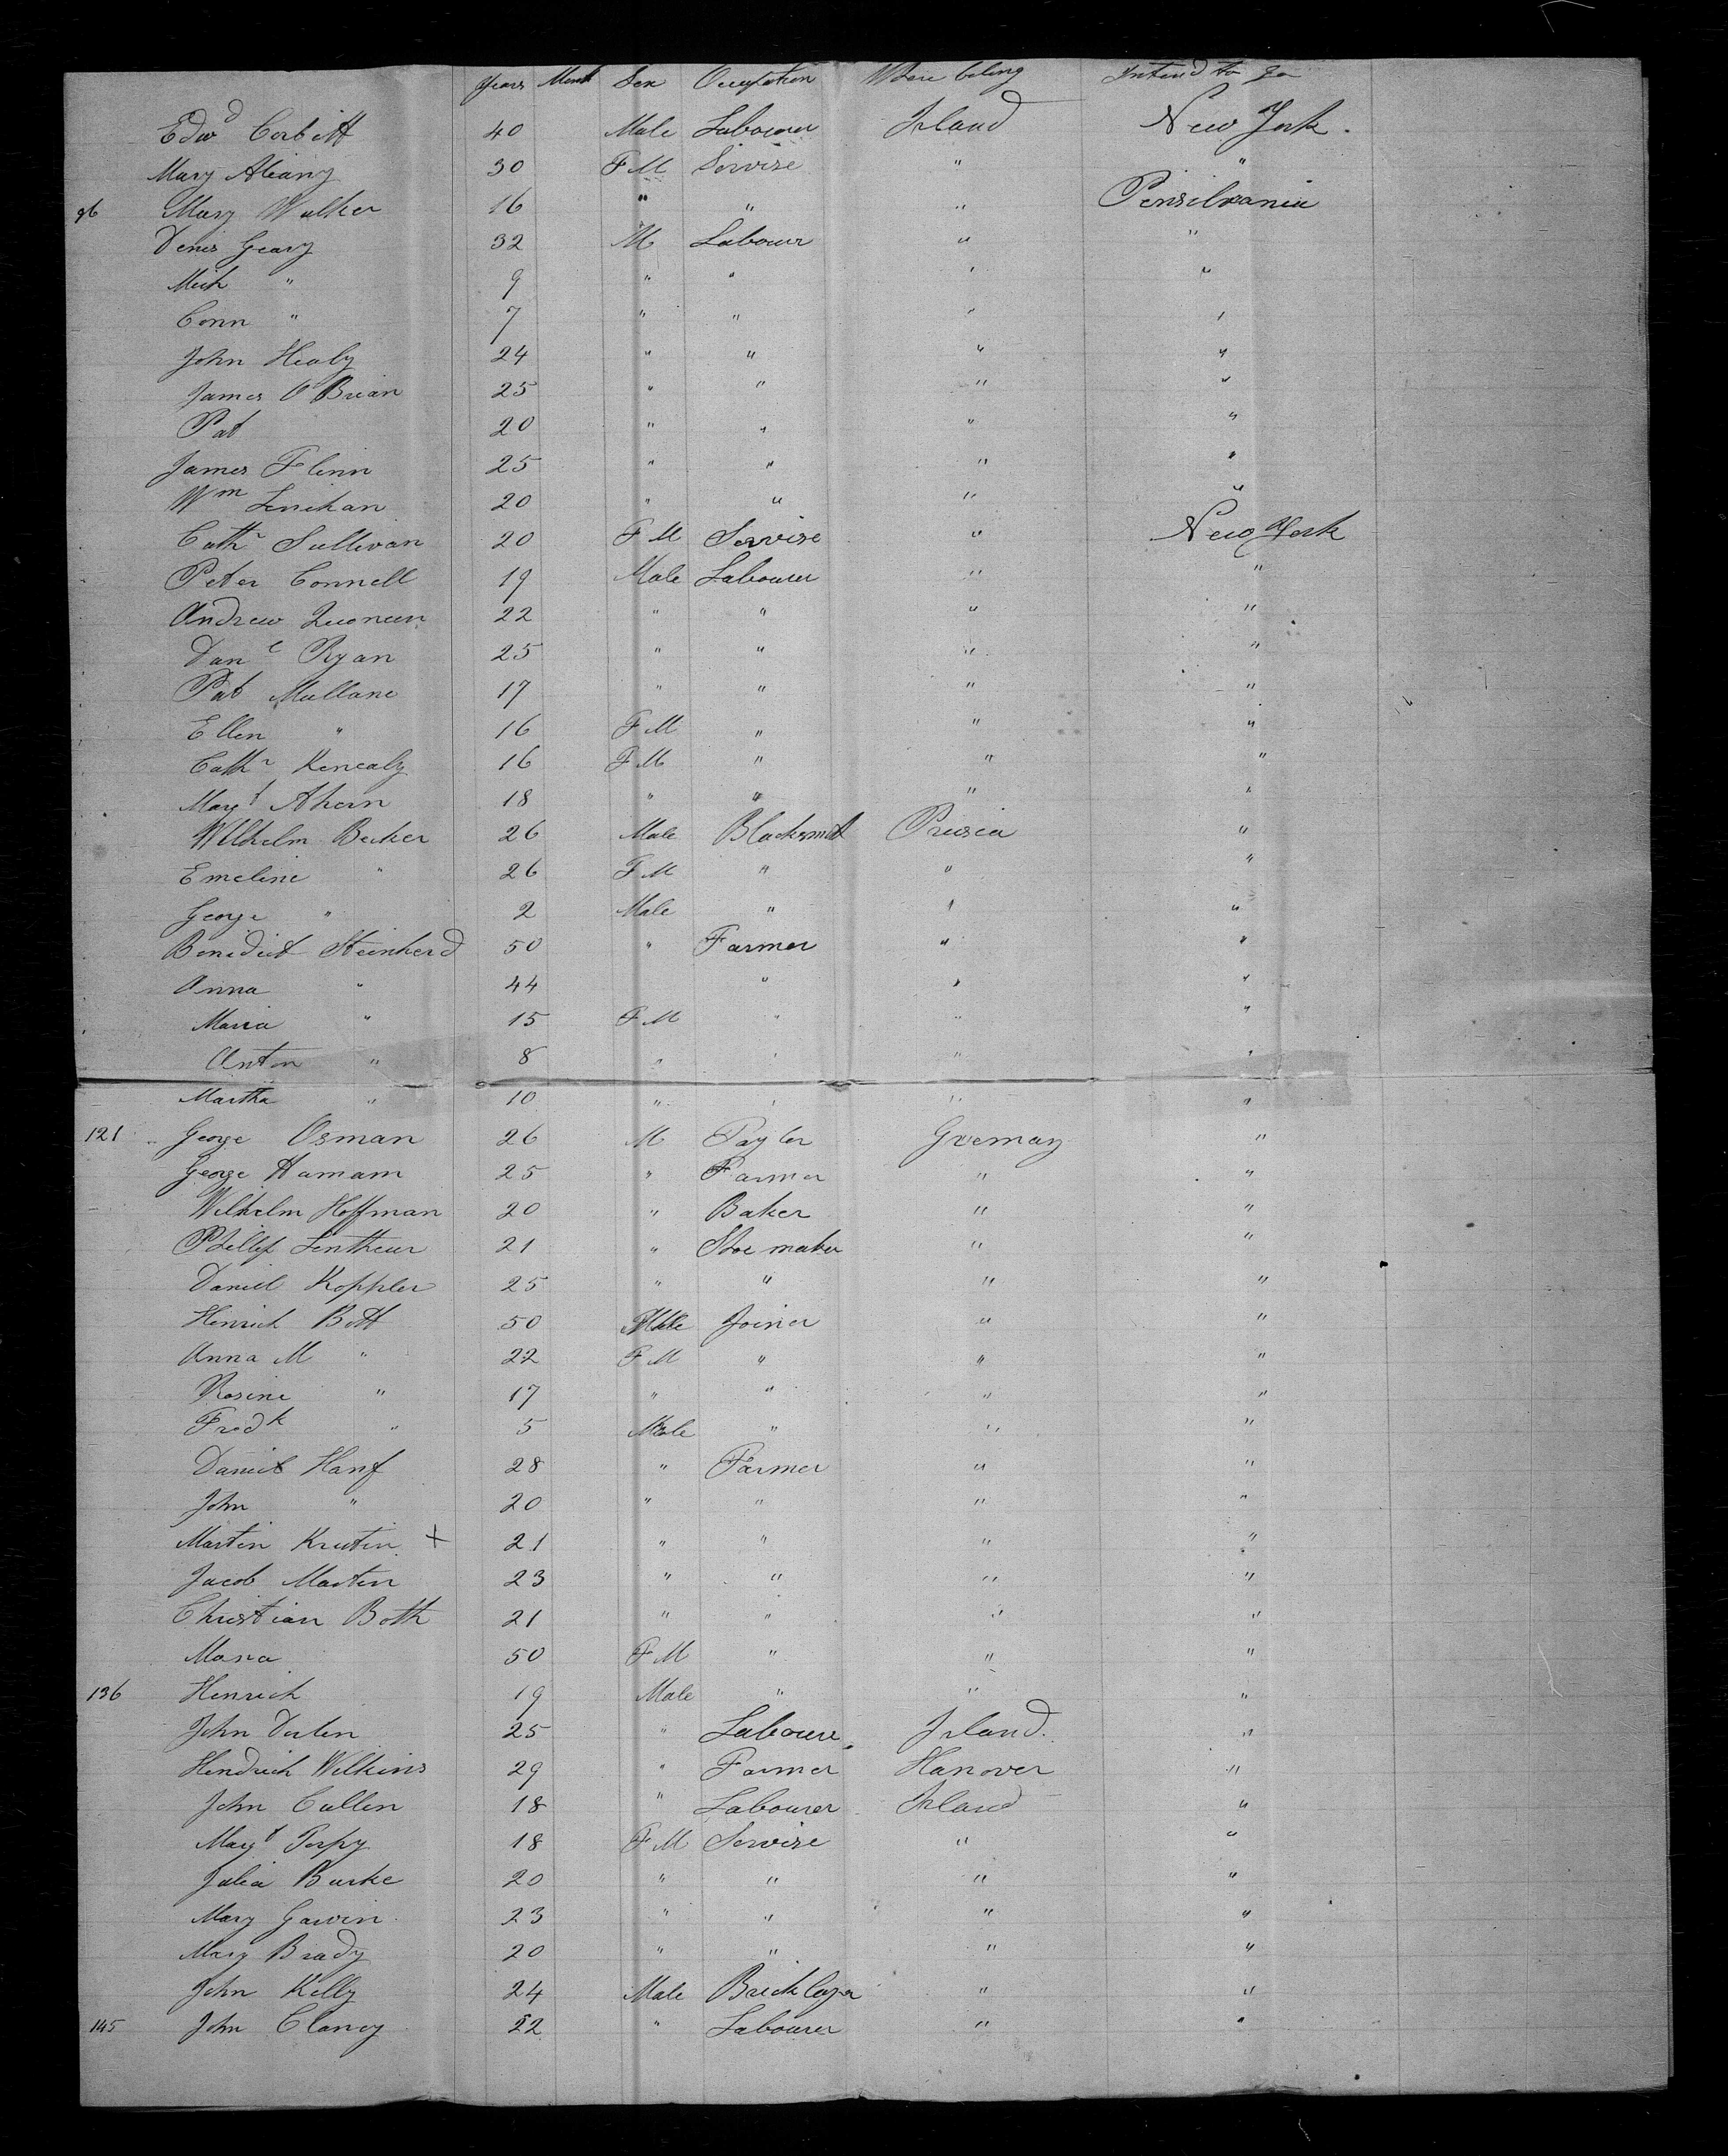 Years Mont Sex Occupation Where belong Intend to go
Edwd Corbett 40 Male Labourer Irland New York.
Mary Aheany 30 F M Servise " "
96 Mary Walker 16 " " " Pensilvania
Denis Geary 32 M Labourr " "
Mich " 9 " " " "
Conn " 7 " " " "
John Healy 24 " " " "
James O'Brian 25 " " " "
Pat 20 " " " "
James Flinn 25 " " " "
Wm Linihan 20 " " " "
Cathr Sullivan 20 F M Servise " New York
Peter Connell 19 Male Labourer " "
Andrew 22 " " " "
Danl Ryan 25 " " " "
Pat Mullane 17 " " " "
Ellen " 16 F M " " "
Cathr Kenealy 16 F M " " "
Margt Ahern 18 " " " "
Wilhelm Becker 26 Male Blacksmit Prusia "
Emeline " 26 F M " " "
George " 2 Male " " "
Benedict Steinherd 50 " Farmer " "
Anna " 44 " " "
Maria " 15 F M " " "
Anton " 8 " " " "
Martha " 10 " " " "
121 George Osman 26 M Tayler Gremany "
George Hamam 25 " Farmer " "
Wilhelm Hoffman 20 " Baker " "
Phillip Lentheur 21 " Shoe maker " "
Daniel Koppler 25 " " " "
Hinrich Bott 50 Male Joiner " "
Anna M " 22 F M " " "
Rosine " 17 " " " "
Fredk " 5 Male " " "
Daniel Hanf 28 " Farmer " "
John " 20 " " " "
Martin Krutin + 21 " " " "
Jacob Martin 23 " " " "
Christian Both 21 " " " "
Maria 50 F M " " "
136 Henrich 19 Male " " "
John 25 " Laboure Irland. "
Hendrich Wilkins 29 " Farmer Hanover "
John Cullen 18 " Labourer Irland "
Margt Torpy 18 F M Servise " "
Julia Burke 20 " " " "
Mary Gavin 23 " " " "
Mary Brady 20 " " " "
John Kelly 24 Male Bricklayer " "
145 John Clancy 22 " Labourer " "